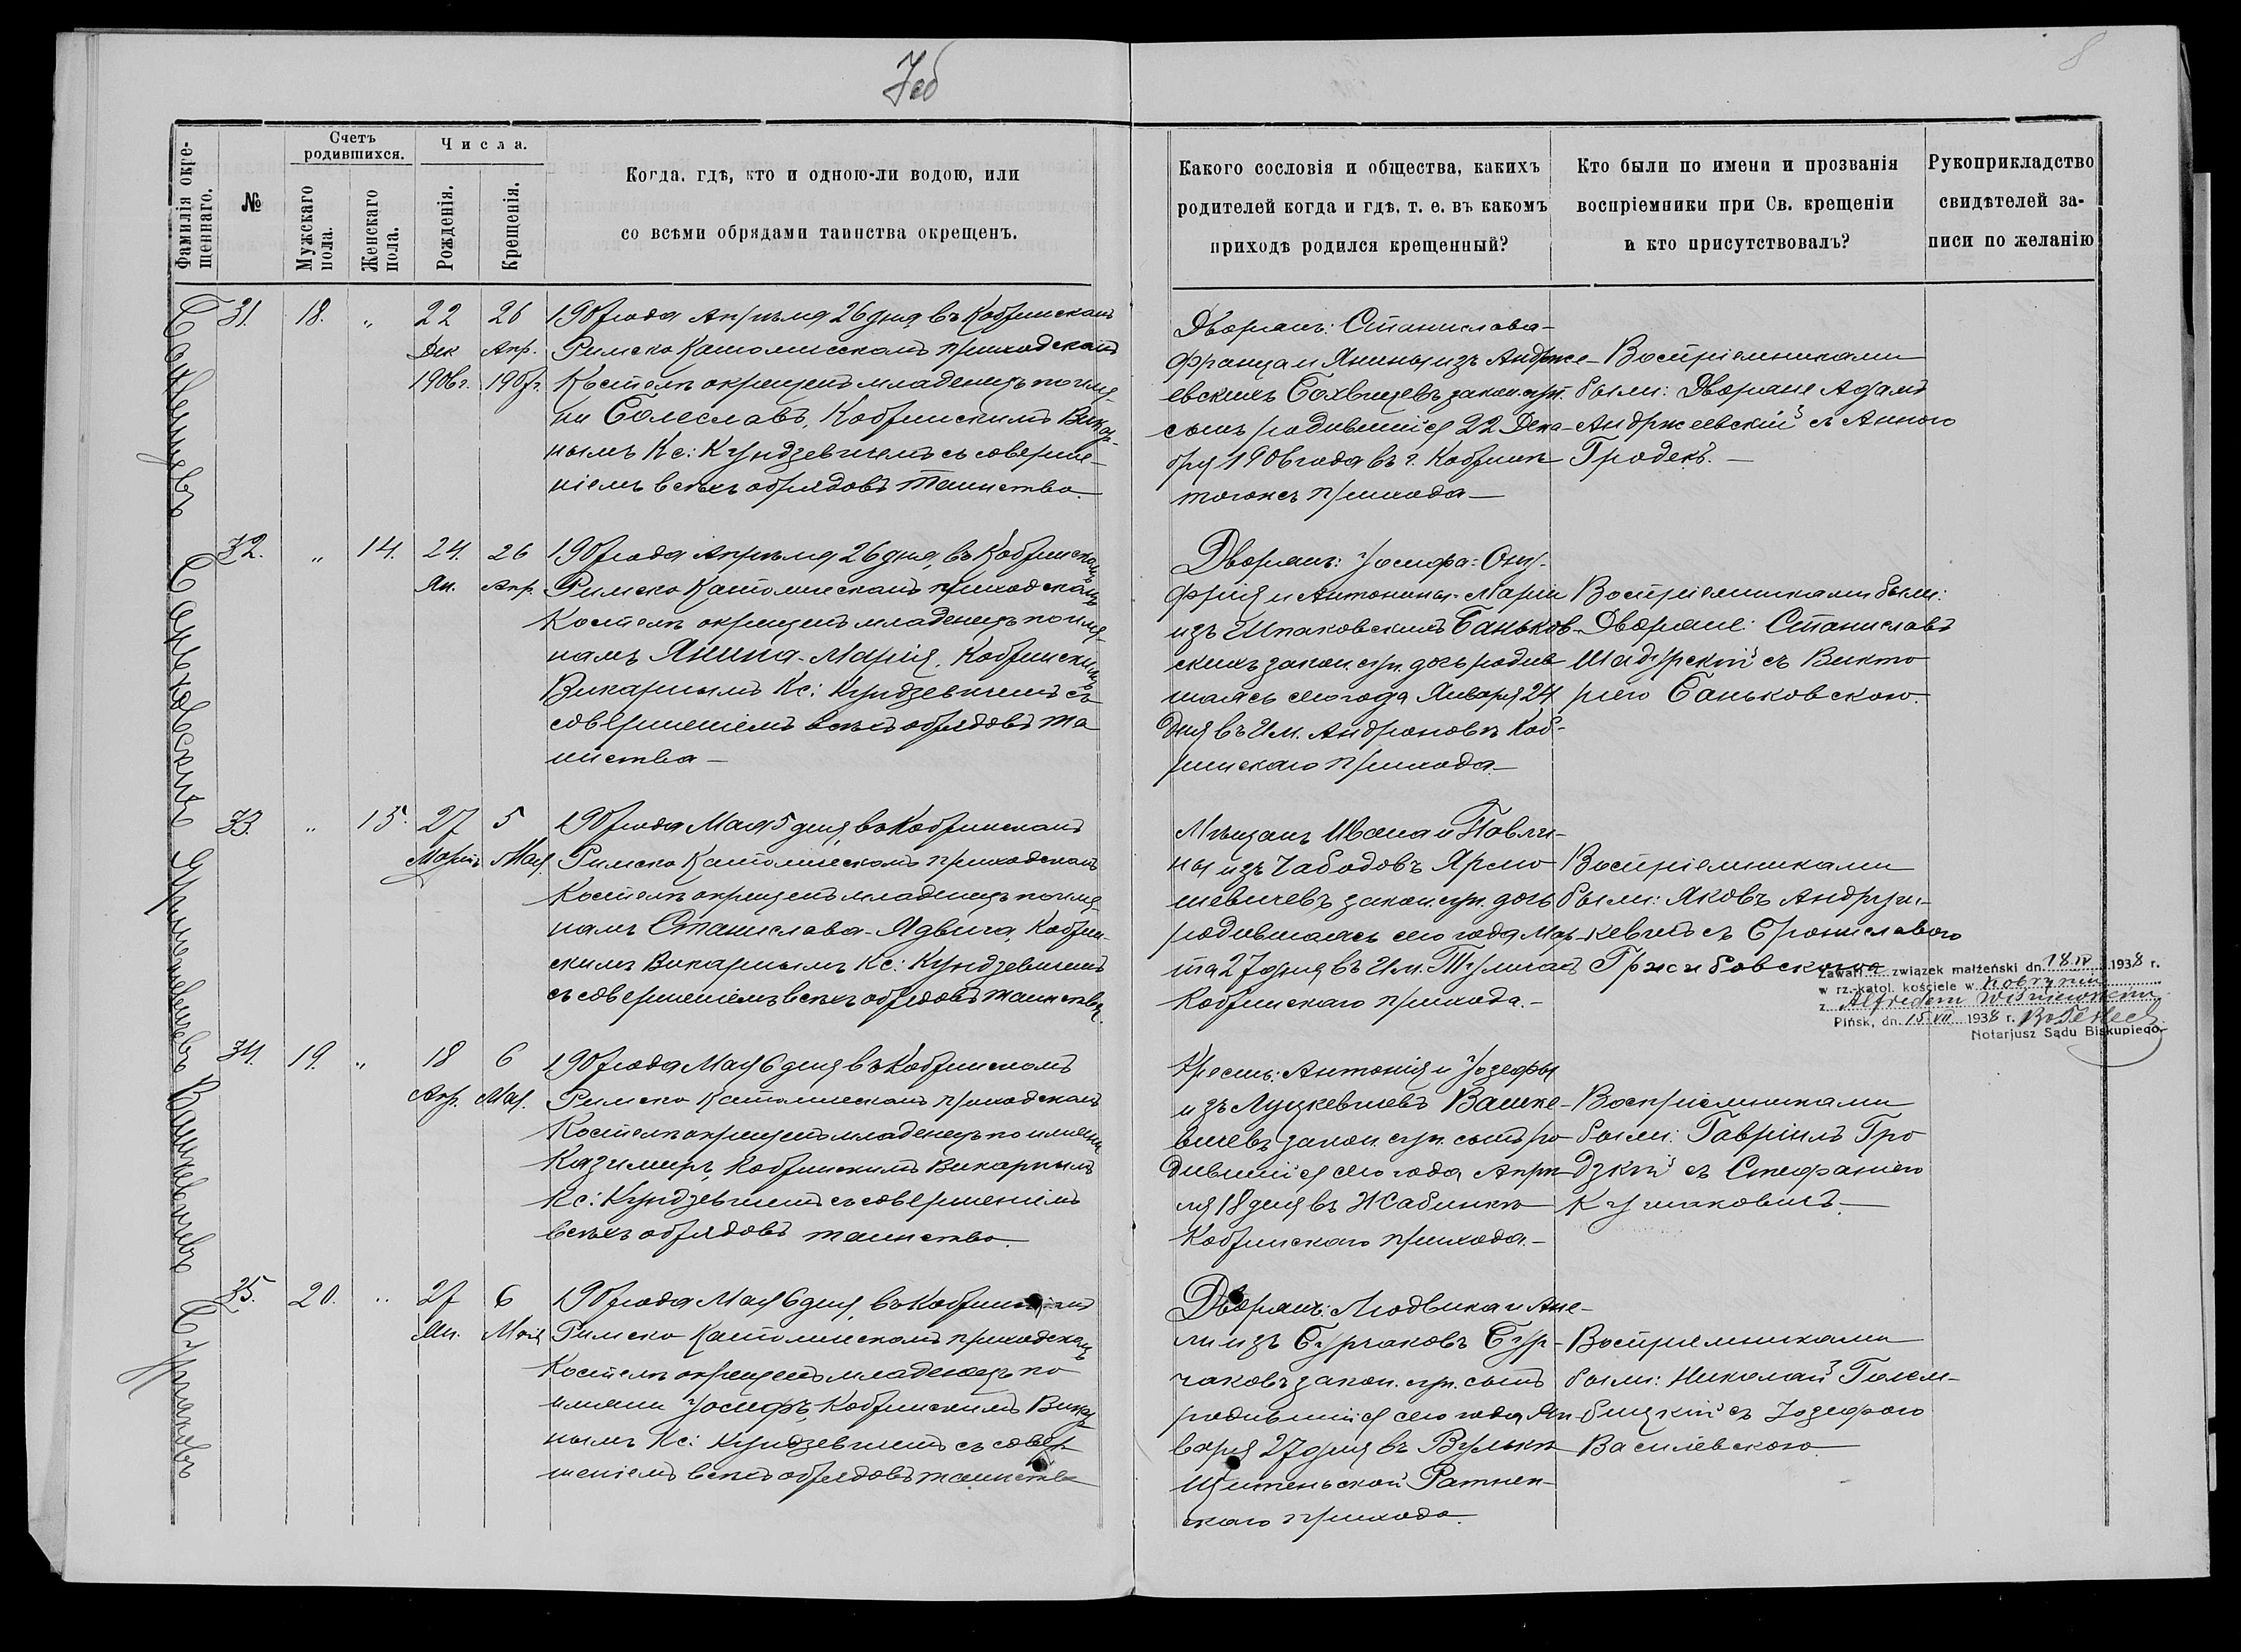 8
Фамилія окре-
щеннаго.
№
Счетъ
родившихся.
Мужскаго
пола.
Женскаго
пола.
Числа.
Рожденія.
Крещенія.
Когда, гдѣ, кто и одною-ли водою, или
со всѣми обрядами таинства окрещенъ.
Какого сословія и общества, какихъ
родителей когда и гдѣ, т. е. въ какомъ
приходѣ родился крещенный?
Кто были по имени и прозванія
воспріемники при Св. крещеніи
и кто присутствовалъ?
Рукоприкладство
свидѣтелей за-
писи по желанію
Бохвицевъ
31. 18. „ 22 26
Дек Апр.
1906г. 1907г.
1907 года Апрѣля 26 дня, въ Кобринскомъ
Римско Католическомъ приходскомъ
Костелѣ окрещенъ младенецъ по име-
ни Болеславъ, Кобринскимъ Викар-
нымъ Кс: Кундзевичемъ съ соверше-
ніемъ всѣхъ обрядовъ таинства
Дворянъ: Станислава-
Франца и Янины изъ Андрже-
евскихъ Бохвицевъ закон. супр.
сынъ родившійся 22 Дека-
бря 1906 года въ г. Кобринѣ
тогоже прихода
Воспріемниками
были: Дворяне Адамъ
Андржеевскій съ Анною
Гродекъ.
Баньковскихъ
32. „ 14. 24. 26
Ян. Апр.
1907 года Апрѣля 26 дня, въ Кобринскомъ
Римско Католическомъ приходскомъ
Костелѣ окрещенъ младенецъ по име-
намъ Янина-Марія, Кобринскимъ
Викарнымъ Кс: Кундзевичемъ съ
совершеніемъ всѣхъ обрядовъ та
инства
Дворянъ: Іосифа-Ону-
фрія и Антонины-Маріи
изъ Шпаковскихъ Баньков-
скихъ закон. супр. дочь родив
шаяся сего года Января 24
дня въ Им. Андроновѣ Коб-
ринскаго прихода
Воспріемниками были:
Дворяне: Станиславъ
Шадурскій съ Викто
ріею Баньковскою.
Ярмошевичевъ
33. „ 15. 27 5
Мартъ Мая
1907 года Мая 5 дня, въ Кобринскомъ
Римско Католическомъ приходскомъ
Костелѣ окрещенъ младенецъ по име-
намъ Станислава-Ядвига, Кобрин-
скимъ Викарнымъ Кс: Кундзевичемъ
съ совершеніемъ всѣхъ обрядовъ таинства.
Мѣщанъ Ивана и Павли-
ны изъ Чабодовъ Ярмо
шевичевъ закон. супр. дочь
родившаяся сего года Мар-
та 27 дня въ Им.
Кобринскаго прихода.
Воспріемниками
были: Яковъ Андрушке-
кевичъ съ Брониславою
Гржибовскою
Zawarł związek małżeński dn. 18.IV 1938 r.
w rz.-katol. kościele w Kobryniu
z Alfredem Wiśniewskim
Pińsk, dn. 15.VII 1938 r.
Notarjusz Sądu Biskupiego
Вашкевичевъ
34. 19. „ 18 6
Апр. Мая.
1907 года Мая 6 дня въ Кобринскомъ
Римско Католическомъ приходскомъ
Костелѣ окрещенъ младенецъ по имени
Казимиръ, Кобринскимъ Викарнымъ
Кс: Кундзевичемъ съ совершеніемъ
всѣхъ обрядовъ таинства.
Кресть: Антонія и Юзефы
изъ Луцкевичевъ Вашке-
вичевъ закон. супр. сынъ ро-
дившійся сего года Апрѣ-
ля 18 дня въ Жабинкѣ
Кобринскаго прихода.
Воспріемниками
были: Гавріилъ Гро
дзкій съ Стефаніею
Кушаковичъ
Бурчаковъ
35. 20. „ 27 6
Ян. Мая
1907 года Мая 6 дня, въ Кобринскомъ
Римско Католическомъ приходскомъ
Костелѣ окрещенъ младенецъ по
имени Іосифъ, Кобринскимъ Викар
нымъ Кс: Кундзевичемъ съ совер
шеніемъ всѣхъ обрядовъ таинства
Дворянъ: Людвика и Ане-
ли изъ Бурчаковъ Бур-
чаковъ закон. супр. сынъ
родившійся сего года Ян-
варя 27 дня въ Вулькѣ
Щитенской Ратнен-
скаго прихода.
Воспріемниками
были: Николай Голем-
бицкій съ Юзефою
Василевскою